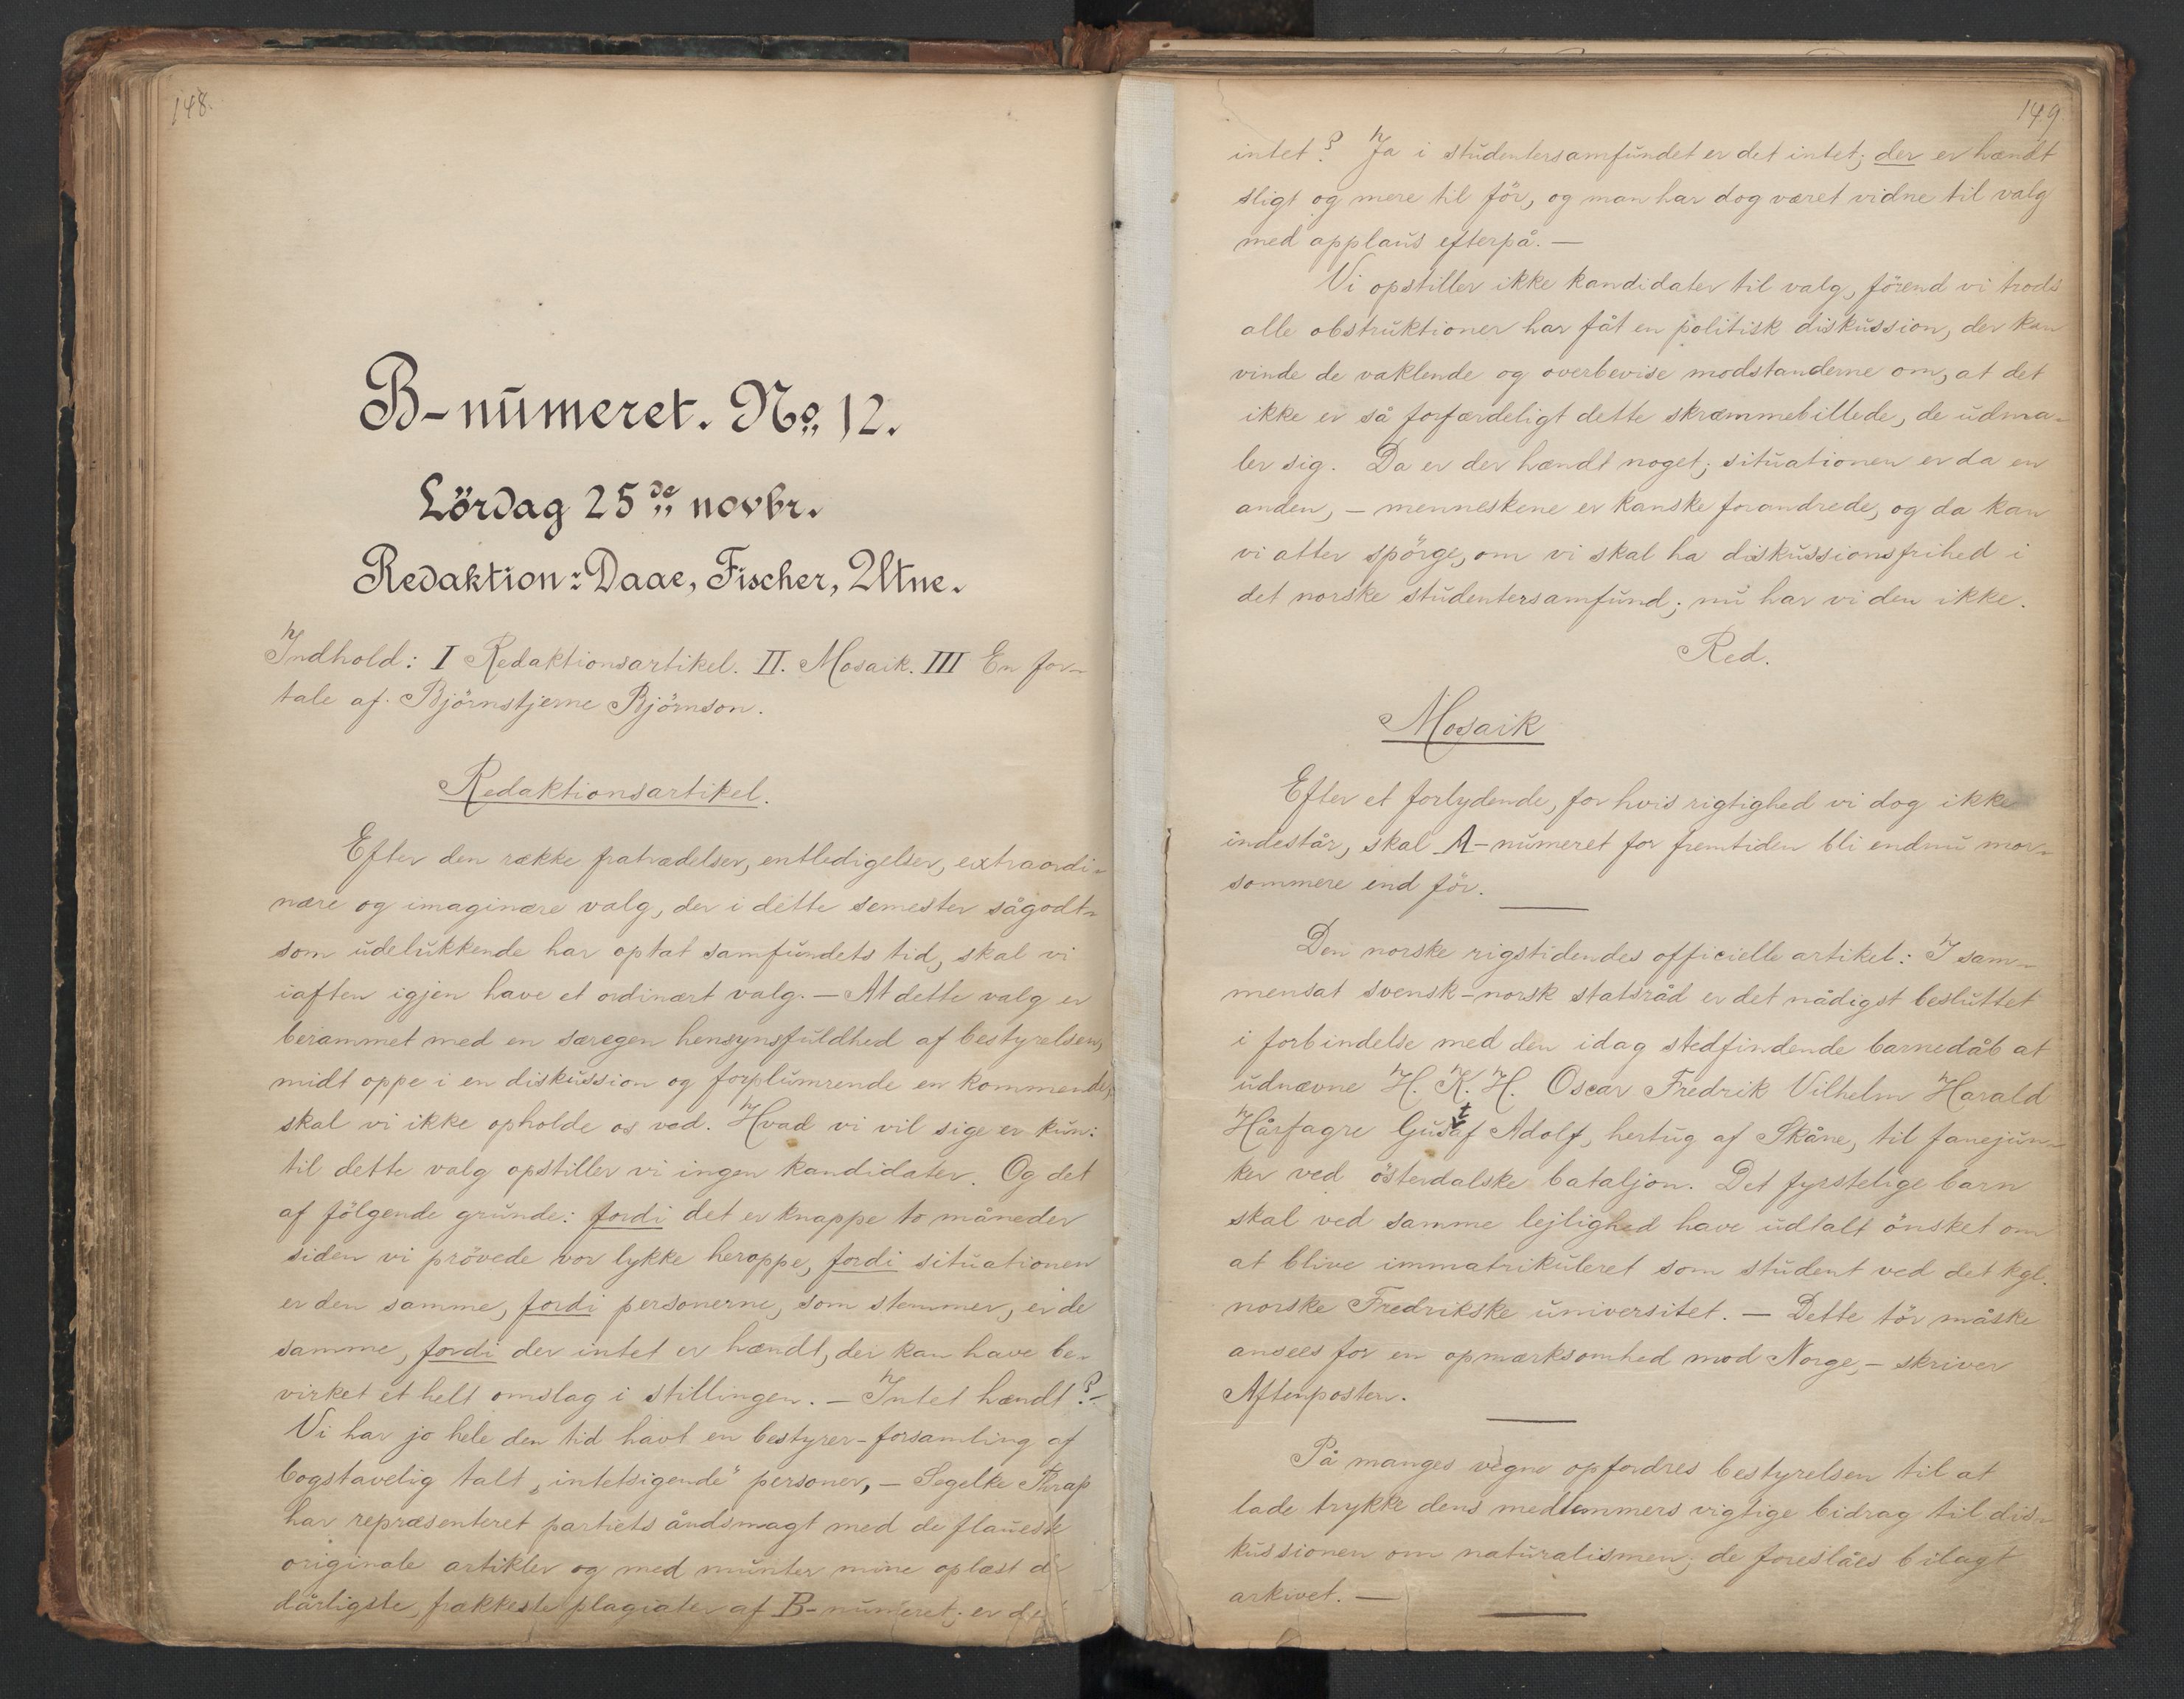 148.
B-numeret. No. 12.
Lördag 25de novbr.
Redaktion: Daae, Fischer, Utne.
Indhold: I Redaktionsartikel. II. Mosaik. III En for-
tale af Björnstjerne Björnson.
Redaktionsartikel.
Efter den række fratrædelser, entledigelser, extraordi-
nære og imaginære valg, der i dette semester sågodt-
som udelukkende har optat samfundets tid, skal vi
iaften igjen have et ordinært valg. — At dette valg er
berammet med en særegen hensynsfuldhed af bestyrelsen,
midt oppe i en diskussion og forplumrende en kommende,
skal vi ikke opholde os ved. Hvad vi vil sige er kun:
til dette valg opstiller vi ingen kandidater. Og det
af fölgende grunde: fordi det er knappe to måneder
siden vi prövede vor lykke heroppe, fordi situationen
er den samme, fordi personerne, som stemmer, er de
samme, fordi der intet er hændt, der kan have be-
virket et helt omslag i stillingen. — Intet hændt? -
Vi har jo hele den tid havt en bestyrer-forsamling af
bogstavelig talt „intetsigende" personer, — Segelke Thrap
har repræsenteret partiets åndsmagt med de flaueste
originale artikler og med munter mine oplæst de
dårligste, frækkeste plagiater af B-numeret; er det
149
intet? Ja i studentersamfundet er det intet; der er hændt
sligt og mere til för, og man har dog været vidne til valg
med applaus efterpå. —
Vi opstiller ikke kandidater til valg, förend vi trods
alle obstruktioner har fåt en politisk diskussion, der kan
vinde de vaklende og overbevise modstanderne om, at det
ikke er så forfærdeligt dette skræmmebillede, de udma-
ler sig. Da er der hændt noget; situationen er da en
anden, — menneskene er kanske forandrede, og da kan
vi atter spörge, om vi skal ha diskussionsfrihed i
det norske studentersamfund; nu har vi den ikke.
Red.
Mosaik
Efter et forlydende, for hvis rigtighed vi dog ikke
indestår, skal A-numeret for fremtiden bli endnu mor-
sommere end för.
Den norske rigstidendes officielle artikel: I sam-
mensat svensk-norsk statsråd er det nådigst besluttet
i forbindelse med den idag stedfindende barnedåb at
udnævne H. K. H. Oscar Fredrik Vilhelm Harald
Hårfagre Gustaf Adolf, hertug af Skåne, til fanejun-
ker ved österdalske bataljon. Det fyrstelige barn
skal ved samme lejlighed have udtalt önsket om
at blive immatrikuleret som student ved det kgl.
norske Fredrikske universitet. — Dette tör måske
ansees for en opmærksomhed mod Norge, — skriver
Aftenposten.
På manges vegne opfordres bestyrelsen til at
lade trykke dens medlemmers vigtige bidrag til dis-
kussionen om naturalismen; de foreslåes bilagt
arkivet. —